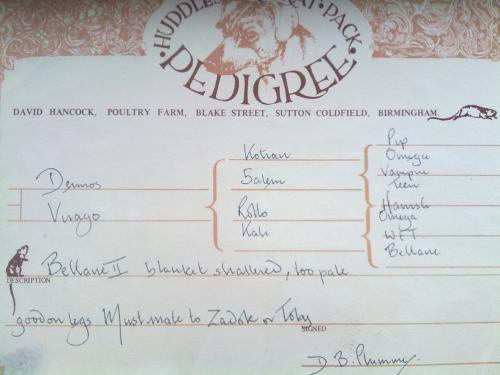 HUDDLES RAT · PACK
· PEDIGREE ·
DAVID HANCOCK, POULTRY FARM, BLAKE STREET, SUTTON COLDFIELD, BIRMINGHAM.
Deimos
Virago
Kotian
Salem
Rollo
Kali
Pup
Omega
Vampire
Teen
Hamish
Omega
WFT
Bellane
Bellane II blanket shattered, too pale
DESCRIPTION
good on legs Must mate to Zadok or Toby
SIGNED
D.B. Plummer.